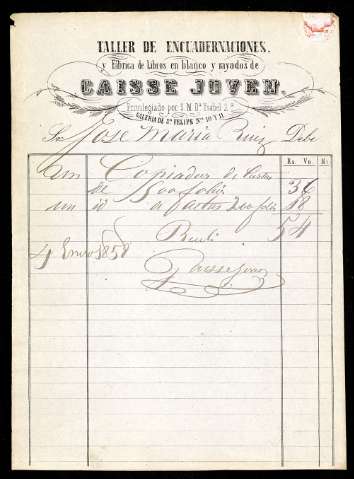 TALLER DE ENCUADERNACIONES.
y Fábrica de Libros en blanco y rayados de
CAISSE JOVEN.
Privilegiado por S. M. Dª Ysabel 2ª
GALERIA DE Sn FELIPE Nos 10 Y 11
Sr Jose Maria Ruiz Debe
Rs. Vn. Ms
Un Copiador de Cartas
de 500 folios 36
un id 18
54
Recibi
4 Enero 1858
Caisse Joven